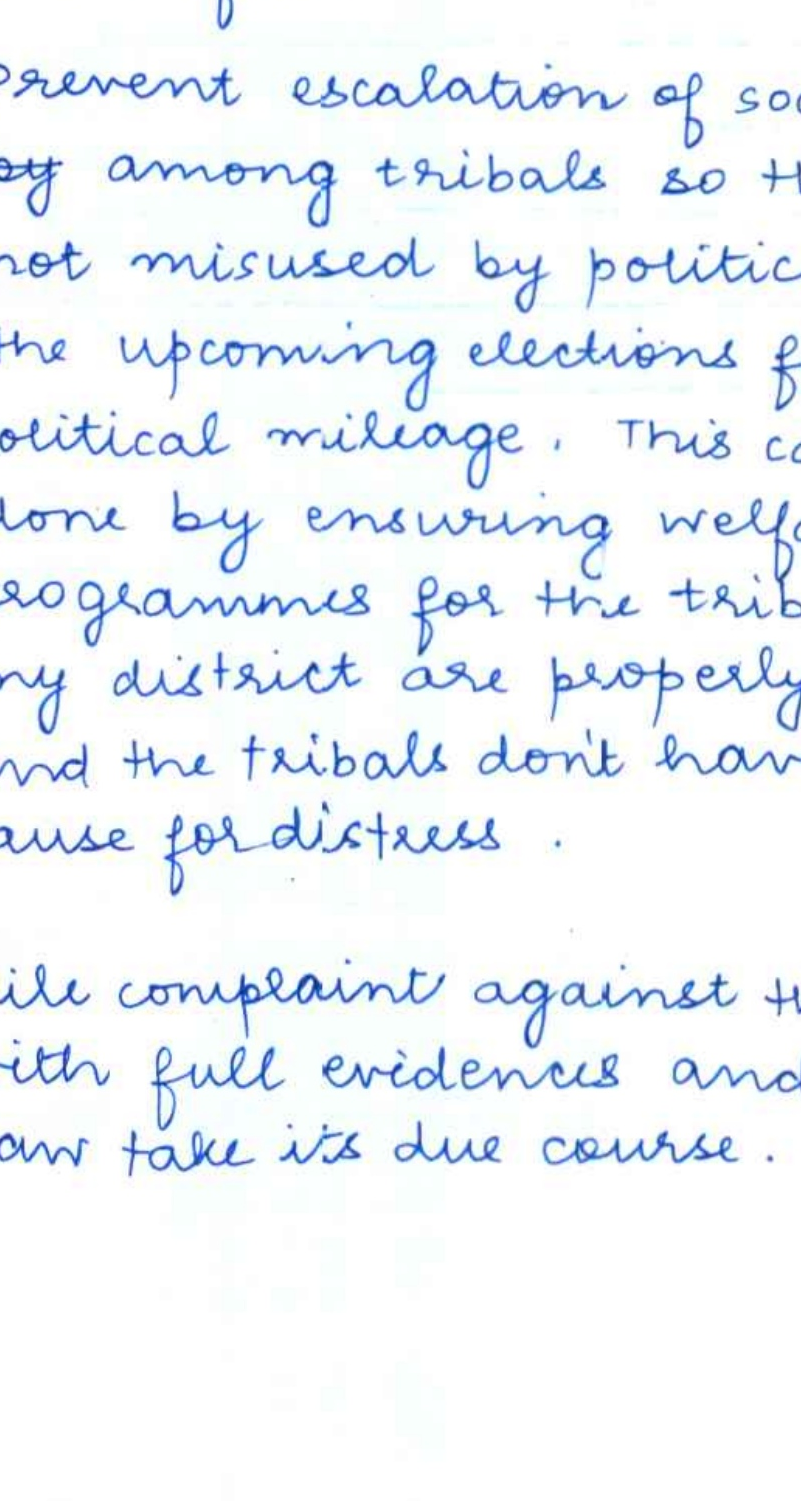 Prevent escalation of soc
by among tribals so th
not misused by politic
the upcoming elections f
olitical mileage. This ca
done by ensuring welfa
rogrammes for the trib
ny district are properly
nd the tribals don't hav
ause for distress.
ile complaint against th
ith full evidences and
aw take it's due course.